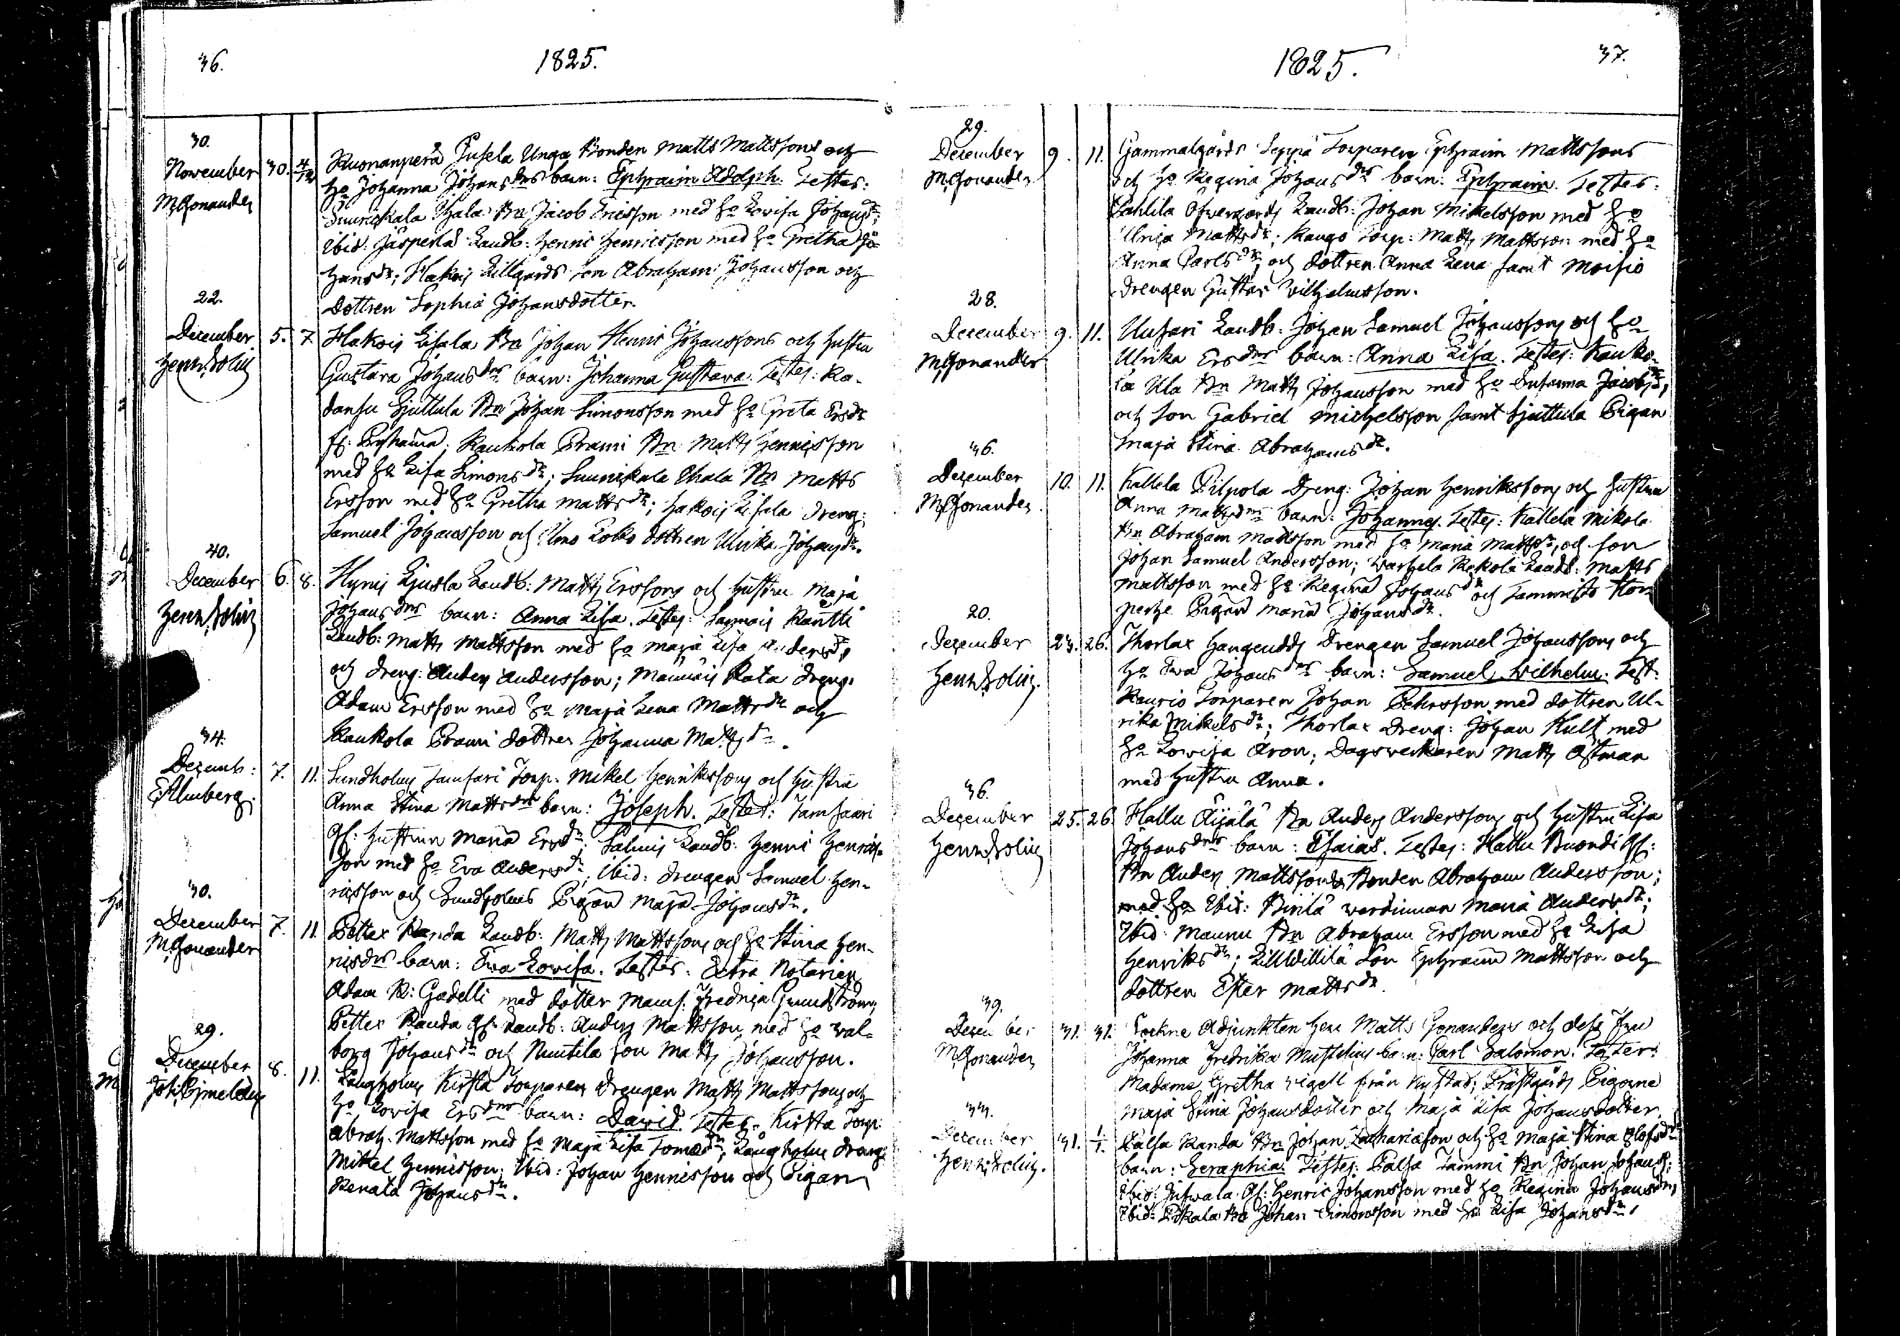 36.
1825.
30.
November 30. 4/12
M Gonander
Kusnanperä Pusela Unga Bonden Matts Mattssons och
Ho Johanna Johansdrs barn: Ephraim Adolph. Testes:
Suurikala Ihala Bn Jacob Ericsson med Ho Lovisa Johansdr;
Ibid: Landb: Henric Henricsson med Ho Gretha Jo-
hansdr; Hakois Lillgårds son Abraham Johansson och
dottren Sophia Johansdotter
22.
December 5. 7.
Henr. Solin
Hakois Eisala Bn Johan Henric Johanssons och hustru
Gustava Johansdrs barn: Johanna Gustava. Testes: Ra-
dansu Sjuttula Bn Johan Simonsson med Ho Greta Ersdr
Kaukola Prami Bn Matts Henricsson
med Ho Lisa Simonsdr; Suurikala Ihala Bn Matts
Ersson med Ho Gretha Mattsdr; Hakois Eisala dreng:
Samuel Johansson och dottren Ulrika Johansdr.
40.
December 6. 8.
Henr. Solin
Landb: Matts Erssons och hustru Maja
Johansdrs barn: Anna Lisa. Testes:
Landb: Matts Mattsson med Ho Maja Lisa Andersdr,
och dreng: Anders Andersson; Rata dreng:
Adam Ersson med Ho Maja Lena Mattsdr och
Kaukola Prami dottren Johanna Mattsdr.
34.
Decemb: 7. 11.
E Almberg.
Sundholms Jamsari Torp. Mikel Henrikssons och hustru
Anna Stina Mattsdrs barn: Joseph. Testes: Jamsaari
Gf: Hustrun Maria Ersdr; Salmis Landb: Henric Henrics-
son med Ho Eva Andersdr; Ibid: drengen Samuel Hen-
ricsson och Sundholms Pigan Maja Johansdr.
30.
December 7. 11.
M Gonander
Pettes Randa Landb: Matts Mattssons och Ho Stina Hen-
ricsdrs barn: Eva Lovisa. Testes: Extra Notarien
Adam R: Gadelli med dotter Mams: Fredrica Grundström;
Pettes Randa Gf: Landb: Anders Mattsson med Ho Wal-
borg Johansdr och Nuutila son Matts Johansson.
29.
December 8. 11.
Långholms Kirsta Torparen drengen Matts Mattssons och
Ho Lovisa Ersdrs barn: David. Testes: Kirsta Torp:
Abrah. Mattsson med Ho Maja Lisa Tomasdr; Långholms dreng:
Mikkel Henricsson; Ibid: Johan Henricsson och Pigan
Renata Johansdr.
1825.
37.
29.
December 9. 11.
M Gonander
Gammalgårds Seppä Torparen Ephraim Mattssons
och Ho Regina Johansdrs barn: Ephraim. Testes:
Pahlila Öfvergårds Landb: Johan Mikelsson med Ho
Ulrica Mattsdr; Kaugo Torp: Matts Mattsson med Ho
Anna Carlsdr, och dottren Anna Lena samt Moisio
drengen Gustav Wilhelmsson.
28.
December 9. 11.
M Gonander
Uusari Landb: Johan Samuel Johanssons och Ho
Ulrika Ersdrs barn: Anna Lisa. Testes: Kauko-
la Ula Bn Matts Johansson med Ho Susanna Jacobsdr,
och Son Gabriel Michelsson samt Sjuttula Pigan
Maja Stina Abrahamsdr.
36.
December 10. 11.
M Gonander
Kallela Pilpola Dreng: Johan Henrikssons och hustru
Anna Mattsdrs barn: Johannes. Testes: Kallela Mikola
Bn Abraham Mattsson med Ho Maria Mattsdr, och son
Johan Samuel Andersson; Kekola Landb: Matts
Mattsson med Ho Regina Johansdr och Tammisto Kom-
perhe Pigan Maria Johansdr.
20.
December 23. 26.
Henr. Solin.
Thorlax Drengen Samuel Johanssons och
Ho Eva Johansdrs barn: Samuel Wilhelm. Test:
Kaurio Torparen Johan Pehrsson med dottren Ul-
rika Mikelsdr; Thorlax dreng: Johan Kult med
Ho Lovisa Aron; Dagsverkaren Matts Östman
med hustru Anna.
36.
December 25. 26.
Henr. Solin
Hallu Äijälä Bn Anders Anderssons och hustru Lisa
Johansdrs barn: Esaias. Testes: Hallu Gf:
Bn Anders Mattsson, Bonden Abraham Andersson;
med Ho Ibid: Pirilä werdinnan Maria Andersdr;
Ibid: Maunu Bn Abraham Ersson med Ho Lisa
Henriksdr; Lillwillilä Son Ephraim Mattsson och
dottren Ester Mattsdr.
39.
December 31. 31.
M Gonander
Sockne Adjunkten Herr Matts Gonanders och dess Fru
Johanna Fredrika Mustelius barn: Carl Salomon. Testes:
Madame Gretha Wigell från Nystad; Prästgårds Pigorne
Maja Stina Johansdotter och Maja Lisa Johansdotter.
33.
December 31. 1/1
Henr. Solin.
Palsa Randa Bn Johan Zachariasson och Ho Maja Stina Olofsdrs
barn: Seraphia. Testes: Palsa Tammi Bn Johan Johanss:
Ibid: Gf: Henric Johansson med Ho Regina Johansdr,
Ibid: Pikala Bn Johan Simonsson med Ho Lisa Johansdr.